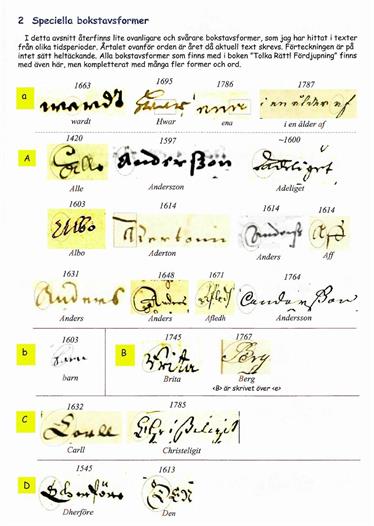 2 Speciella bokstavsformer
I detta avsnitt återfinns lite ovanligare och svårare bokstavsformer, som jag har hittat i texter
från olika tidsperioder. Årtalet ovanför orden är året då aktuell text skrevs. Förteckningen är på
intet sätt heltäckande. Alla bokstavsformer som finns med i boken "Tolka Rätt! Fördjupning" finns
med även här, men kompletterat med många fler former och ord.
a
1663 1695 1786 1787
wardt Hwar ena i en ålder af
A
1420 1597 ~1600
Alle Anderszon Adeliget
1603 1614 1614 1614
Albo Aderton Anders Aff
1631 1648 1671 1764
Anders Anders Afledh Andersson
b
1603
barn
B
1745 1767
Brita Berg
<B> är skrivet över <e>
C
1632 1785
Carll Christeligit
D
1545 1613
Dherföre Den